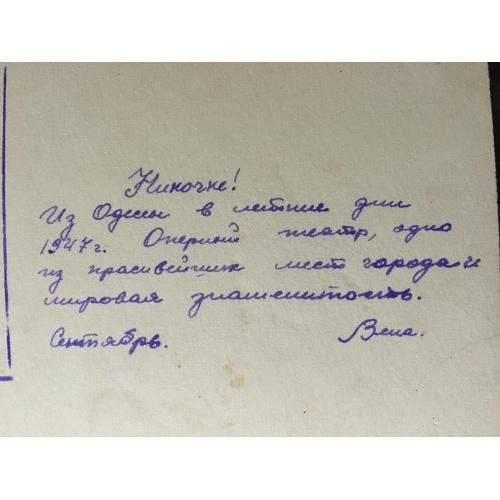 Ниночке!
Из Одессы в летние дни
1947г. Оперный театр, одно
из красивейших мест города и
мировая знаменитость.
Сентябрь. Вена.